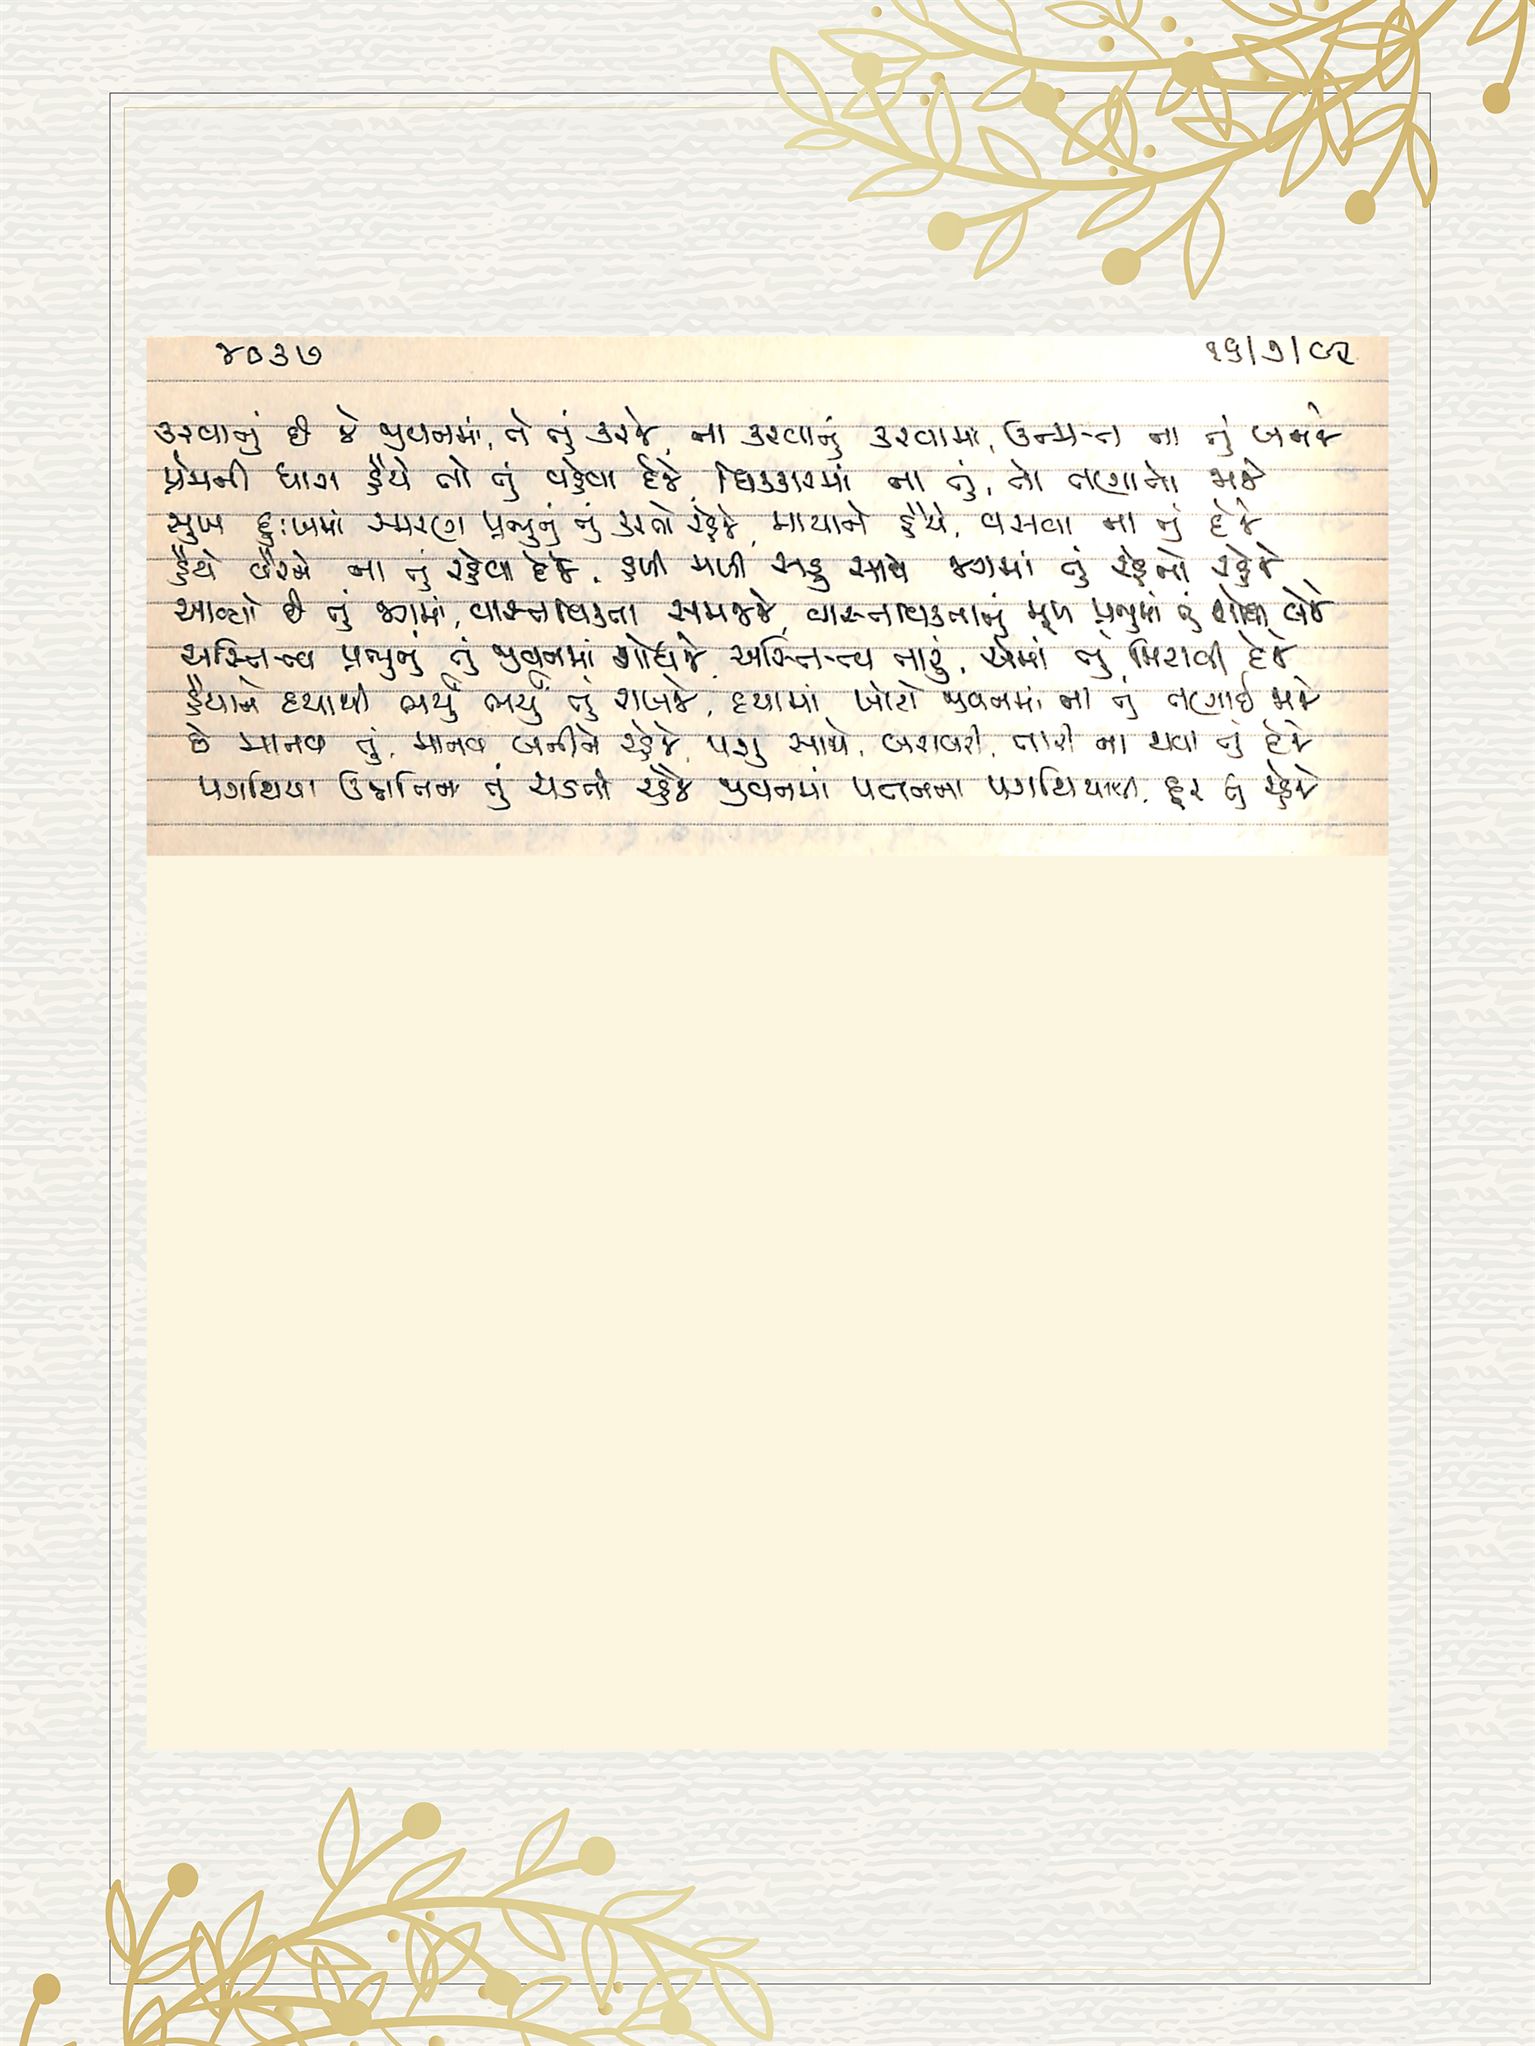 ૪૦૩૭ ૧૬/૭/૯૨
કરવાનું છે જે જીવનમાં, તે તું કરજે, ના કરવાનું કરવામાં, ઉન્મત્ત ના તું બનજે
પ્રેમની ધારા હૈયે તો તું વહેવા દેજે, ધિક્કારમાં ના તું, તો તણાતો જાજે
સુખ દુઃખમાં સ્મરણ પ્રભુનું તું કરતો રહેજે, માયાને હૈયે, વસવા ના તું દેજે
હૈયે વેરને ના તું રહેવા દેજે, હળી મળી સહુ સાથે જગમાં તું રહેતો રહેજે
આવ્યો છે તું જગમાં, વાસ્તવિકતા સમજજે, વાસ્તવિકતાનું મૂળ પ્રભુમાં તું શોધી લેજે
અસ્તિત્વ પ્રભુનું તું જીવનમાં શોધજે, અસ્તિત્વ તારું, એમાં તું મિટાવી દેજે
હૈયાને દયાથી ભર્યું ભર્યું તું રાખજે, દયામાં ખોટો જીવનમાં ના તું તણાઈ જાજે
છે માનવ તું, માનવ બનીને રહેજે, પશુ સાથે, બરાબરી, તારી ના થવા તું દેજે
પગથિયા ઉન્નતિના તું ચડતો રહેજે જીવનમાં પતનના પગથિયાથી, દૂર તું રહેજે